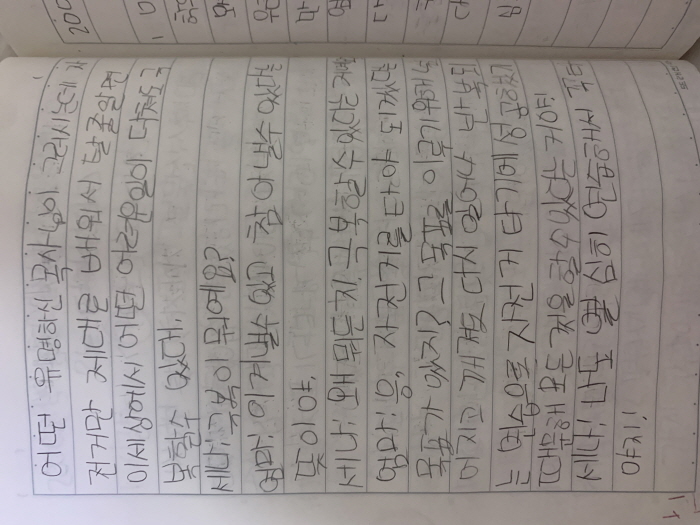 어떤 유명하신 목사님이 그러시는데 자
전거만 제대로 배워서 탈줄알면
이세상에서 어떤 어려운일이 닥쳐도 극
복할수 있대.
세나: 극복이 뭐예요?
엄마: 이겨낼수 있고 참아 낼수 있다는
뜻이야.
세나: 왜 뭐든지 극복할수있다는거예
엄마: 응, 자전거를
목표가 있지? 그 목표를 이루기위해
어지고 깨져도 다시 일어나 반복
는 연습으로 자전거 타기에 성공했기
때문에 모든 것을 할수 있다는 거야!
세나: 나도 열심히 연습해서 꼭 타
야지!